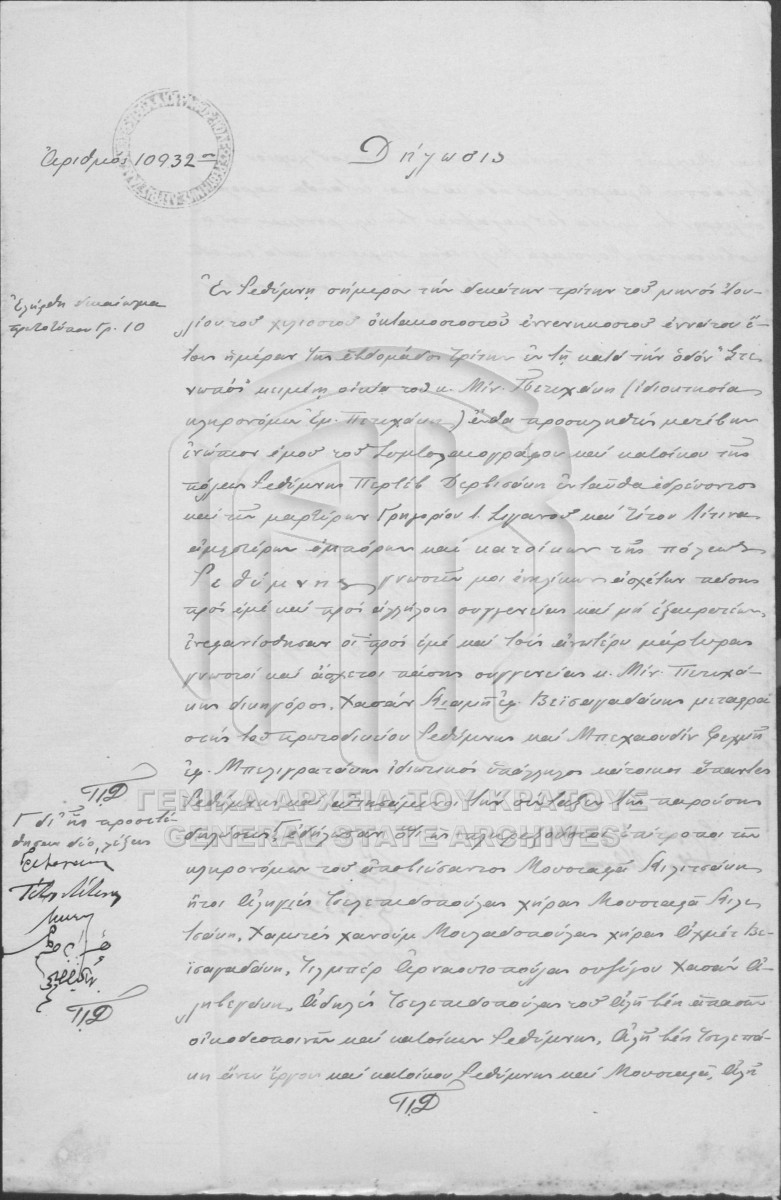 Ἀριθμὸς 10932
Δήλωσις
Ἐλήφθη δικαίωμα
πρωτοτύπου Γρ. 10
Ἐν Ρεθύμνῃ σήμερον τὴν δεκάτην τρίτην τοῦ μηνὸς Ἰου-
λίου τοῦ χιλιοστοῦ ὀκτακοσιοστοῦ ἐννενηκοστοῦ ἐννάτου ἔ-
τους ἡμέραν τῆς ἑβδομάδος Τρίτην ἐν τῇ κατὰ τὴν ὁδὸν Στε-
νωπὸς κειμένῃ οἰκίᾳ τοῦ κ. Μιν. Πετυχάκη (ἰδιοκτησία
κληρονόμων Ἐμ. Πετυχάκη) ἔνθα προσκληθεὶς μετέβην
ἐνώπιον ἐμοῦ τοῦ Συμβολαιογράφου καὶ κατοίκου τῆς
πόλεως Ρεθύμνης Περτὲβ Δερβισάκη ἐνταῦθα ἑδρεύοντος
καὶ τῶν μαρτύρων Γρηγορίου Ι. Σιγανοῦ καὶ Τίτου Λίτινα
ἀμφοτέρων καὶ κατοίκων τῆς πόλεως
Ρεθύμνης γνωστῶν μοι ἐνηλίκων ἀσχέτων πάσης
πρὸς ἐμὲ καὶ πρὸς ἀλλήλους συγγενείας καὶ μὴ ἐξαιρετέων,
ἐνεφανίσθησαν οἱ πρὸς ἐμὲ καὶ τοὺς ἀνωτέρω μάρτυρας
γνωστοὶ καὶ ἄσχετοι πάσης συγγενείας κ. Μιν. Πετυχά-
κης δικηγόρος, Χασὰν Κιαμὴ ἐφ. Βεϊσαγαδάκης μεταφρα-
στὴς τοῦ πρωτοδικείου Ρεθύμνης καὶ Μπεχαουδὶν Φεχμῆ
ἐφ. Μπελιγρατάκης ἰδιωτικὸς ὑπάλληλος κάτοικοι ἅπαντες
Ρεθύμνης καὶ αἰτησάμενοι τὴν σύνταξιν τῆς παρούσης
δηλώσεως, ἐδήλωσαν ὅτι πληρεξούσιοι ἐπίτροποι τῶν
κληρονόμων τοῦ ἀποβιώσαντος Μουσταφᾶ Κιλιτσάκη
ἤτοι χήρας Μουσταφᾶ Κιλι-
τσάκη, Χαμιντὲ χανοὺμ χήρας Ἀχμὲτ Βε-
ϊσαγαδάκη, συζύγου Χασὰν Ἀ-
ληβεγάκη, τοῦ Ἀλῆ βέη ἁπασῶν
οἰκοδεσποινῶν καὶ κατοίκων Ρεθύμνης, Ἀλῆ βέη
ἄνευ ἔργου καὶ κατοίκου Ρεθύμνης καὶ Μουσταφᾶ Ἀλῆ
ΠΔ
ΠΔ
Γ δι' ἧς προσετέ-
θησαν δύο λέξεις
ΠΔ
ΓΕΝΙΚΑ ΑΡΧΕΙΑ ΤΟΥ ΚΡΑΤΟΥΣ
GENERAL STATE ARCHIVES